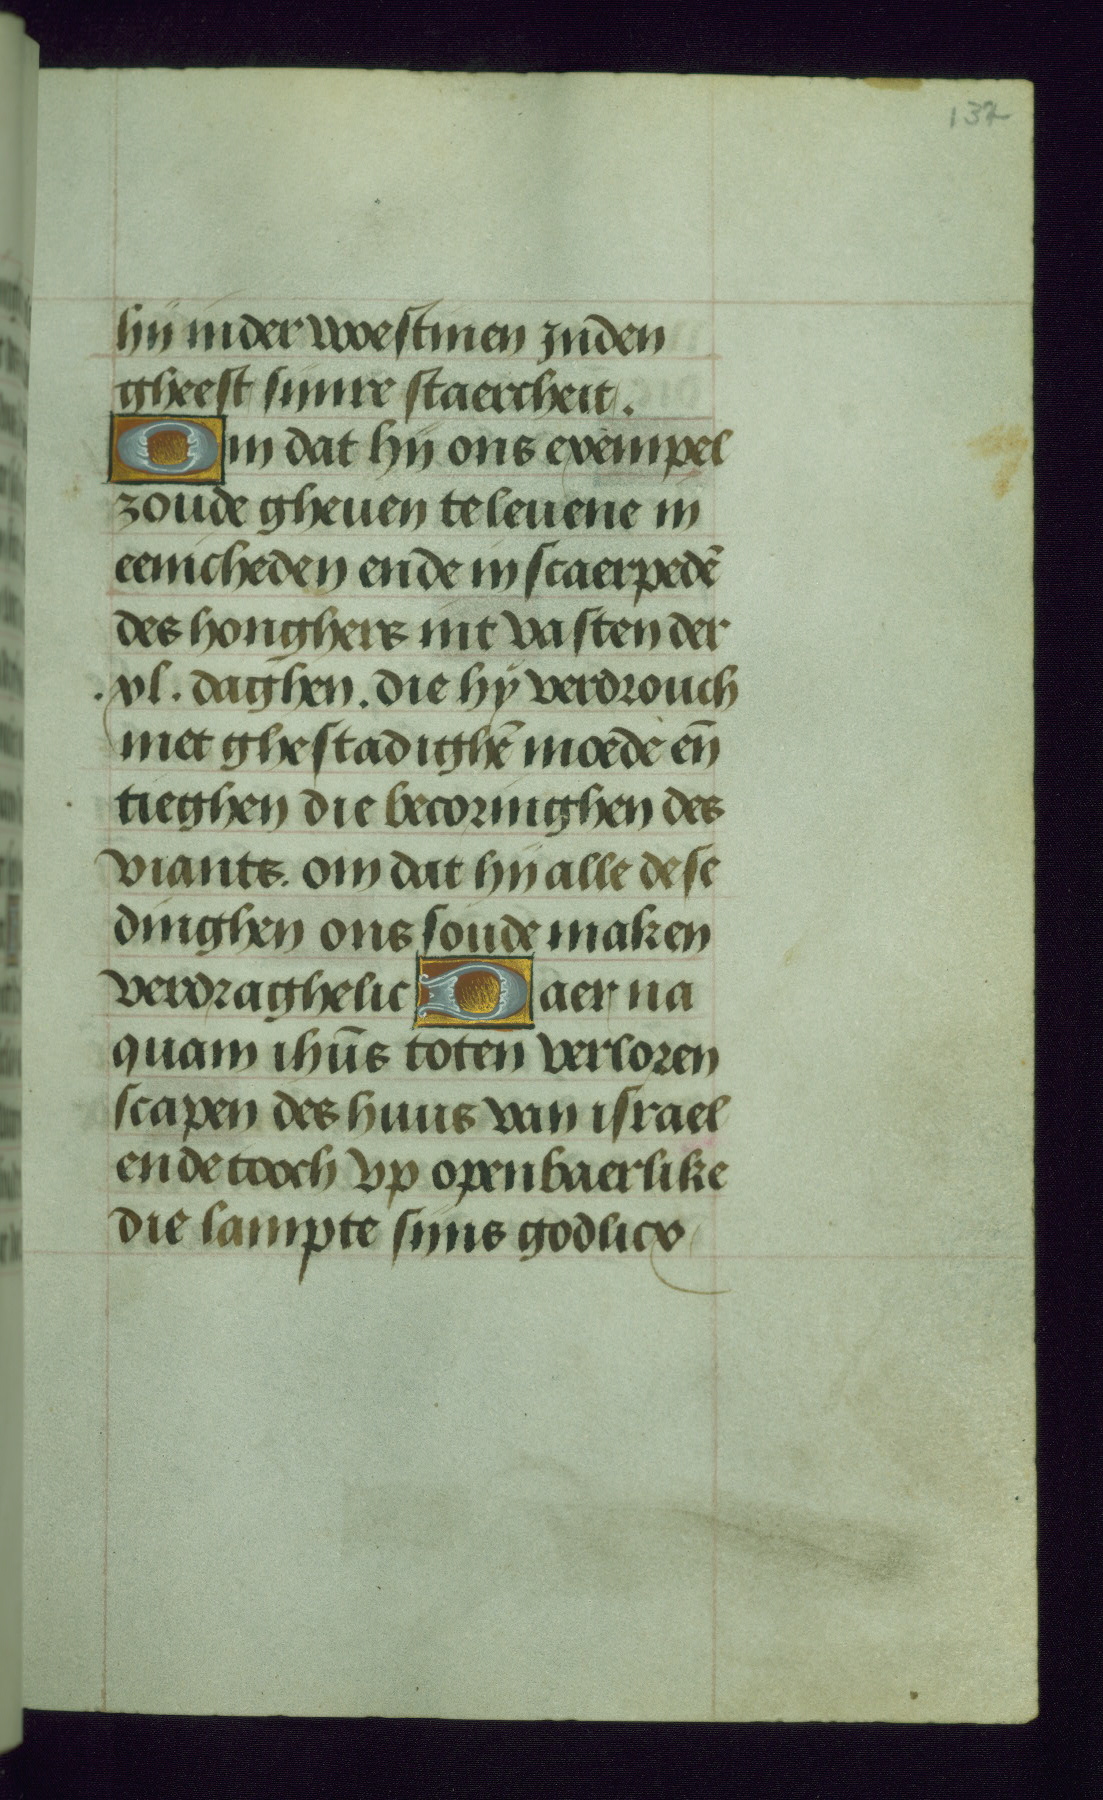 137
hij inder woestinen Inden
gheest sijnre staercheit.
Om dat hij ons exempel
zoude gheuen te leuene in
eenicheden ende in scaerpedē
des honghers int vasten der
.xl. daghen. die hy verdrouch
met ghestadighē moede en̄
tieghen die becoringhen des
viants. om dat hij alle dese
dinghen ons soude maken
verdraghelic Daer na
quam ihūs toten verloren
scapen des huus van israel
ende tooch vp openbaerlike
die lampte sijns godlicx